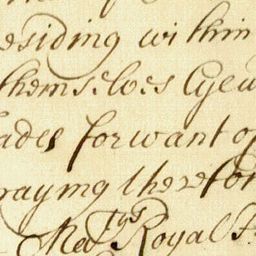 esiding within
themselves Lyeu
ades for want of
raying therefor
Ma^tys Royal